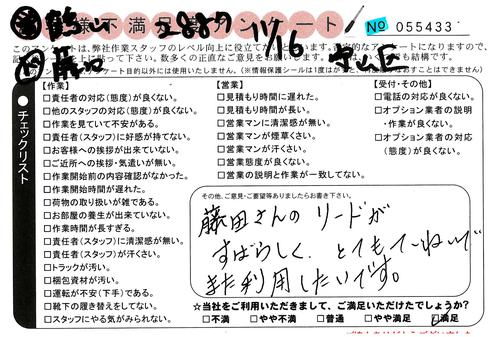 鶴 2887 11/16
様不満足度アンケート
No 055433
このアンケートは、弊社作業スタッフのレベル向上に役立てたい
チェックリスト
【作業】
□責任者の対応(態度)が良くない。
□他のスタッフの対応(態度)が良くない。
□作業を見ていて不安がある。
□責任者(スタッフ)に好感が持てない。
□お客様への挨拶が出来ていない。
□ご近所への挨拶・気遣いが無い。
□作業開始前の内容確認がなかった。
□作業開始時間が遅れた。
□荷物の取り扱いが雑である。
□お部屋の養生が出来ていない。
□作業時間が長すぎる。
□責任者(スタッフ)に清潔感が無い。
□責任者(スタッフ)が汗くさい。
□トラックが汚い。
□梱包資材が汚い。
□運転が不安(下手)である。
□靴下の履き替えをしてない。
□スタッフにやる気がみられない。
【営業】
□見積もり時間に遅れた。
□見積もり時間が長い。
□営業マンに清潔感が無い。
□営業マンが煙草くさい。
□営業マンが汗くさい。
□営業態度が良くない。
□営業の説明と作業が一致してない。
【受付・その他】
□電話の対応が良くない。
□オプション業者の説明
・作業が良くない。
□オプション業者の対応
(態度)が良くない。
その他、ご意見・ご要望等ありましたらお書き下さい。
藤田さんのリードが
すばらしく、とてもていねいで
また利用したいです。
☆当社をご利用いただきまして、ご満足いただけたでしょうか?
□不満 □やや不満 □普通 □やや満足 □満足